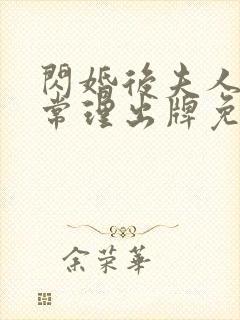 閃婚後夫人
常理出牌免
余荣華